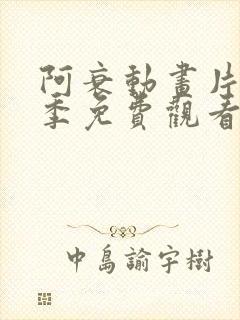 阿衰動畫片
季免費觀看
中島諭宇樹